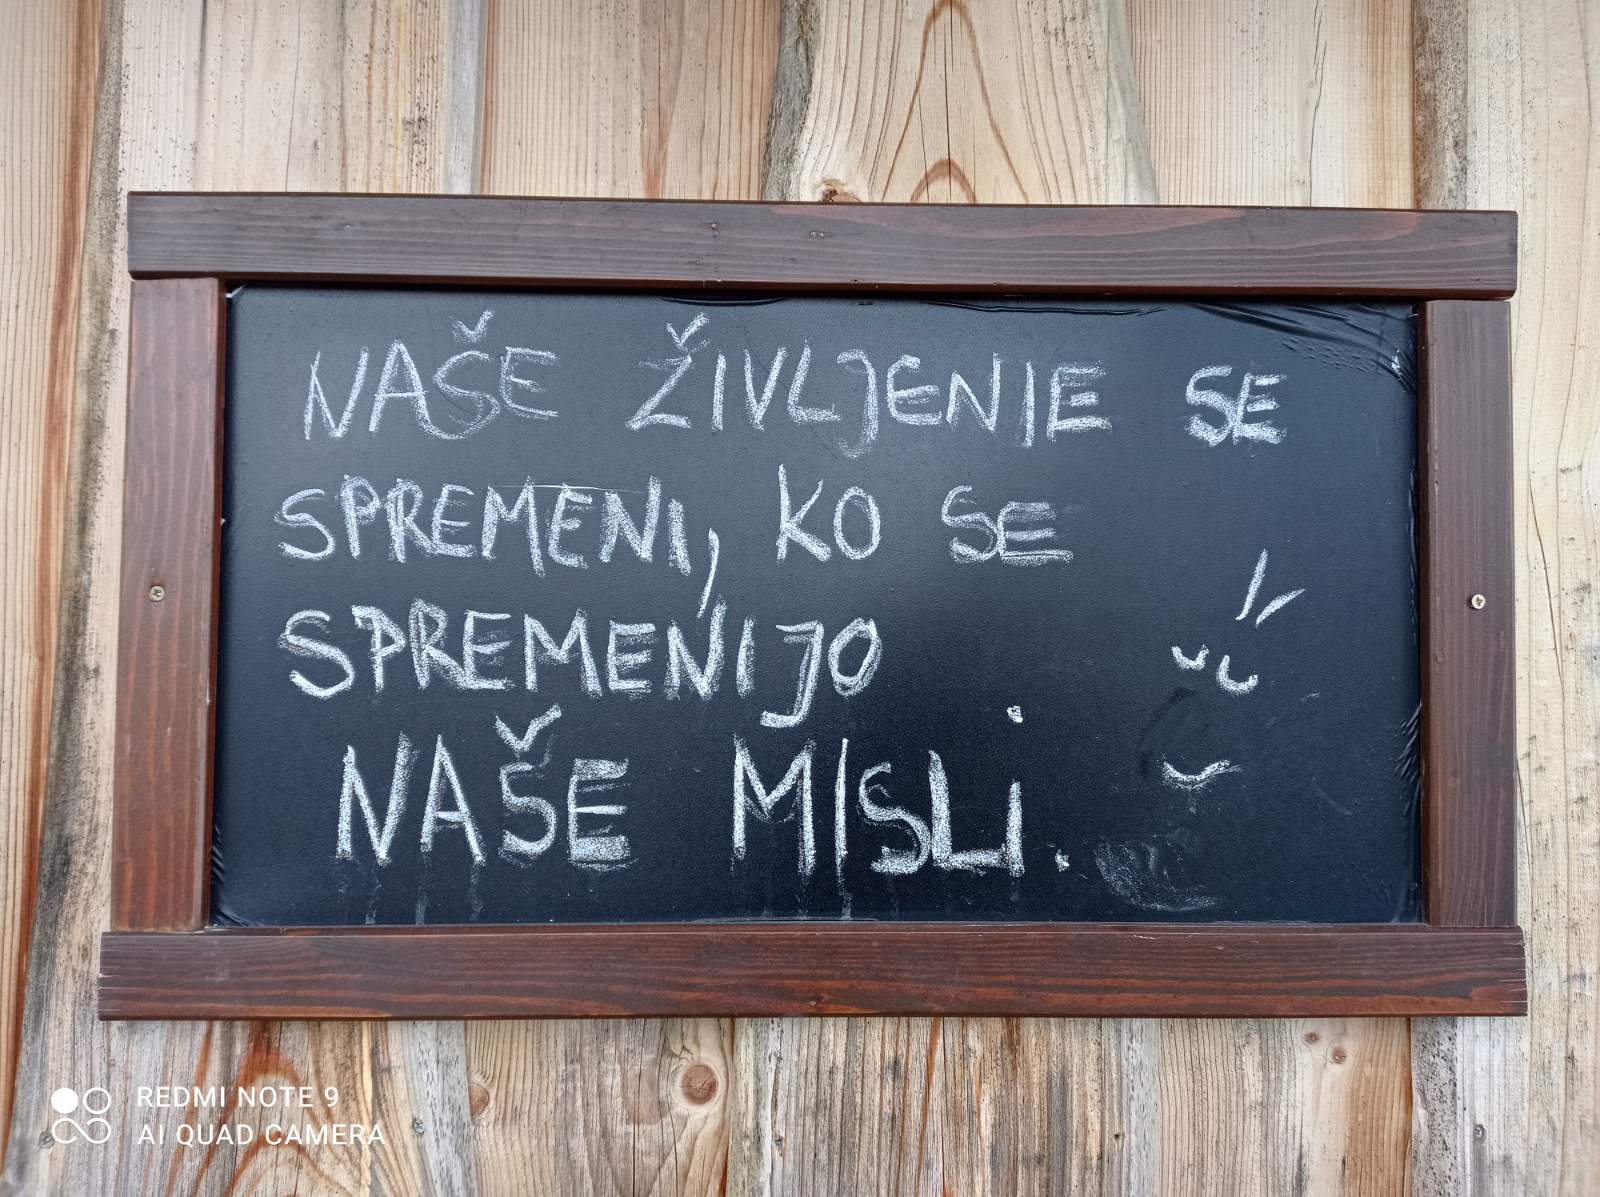 NAŠE ŽIVLJENJE SE
SPREMENI, KO SE
SPREMENIJO
NAŠE MISLi.
REDMI NOTE 9
AI QUAD CAMERA